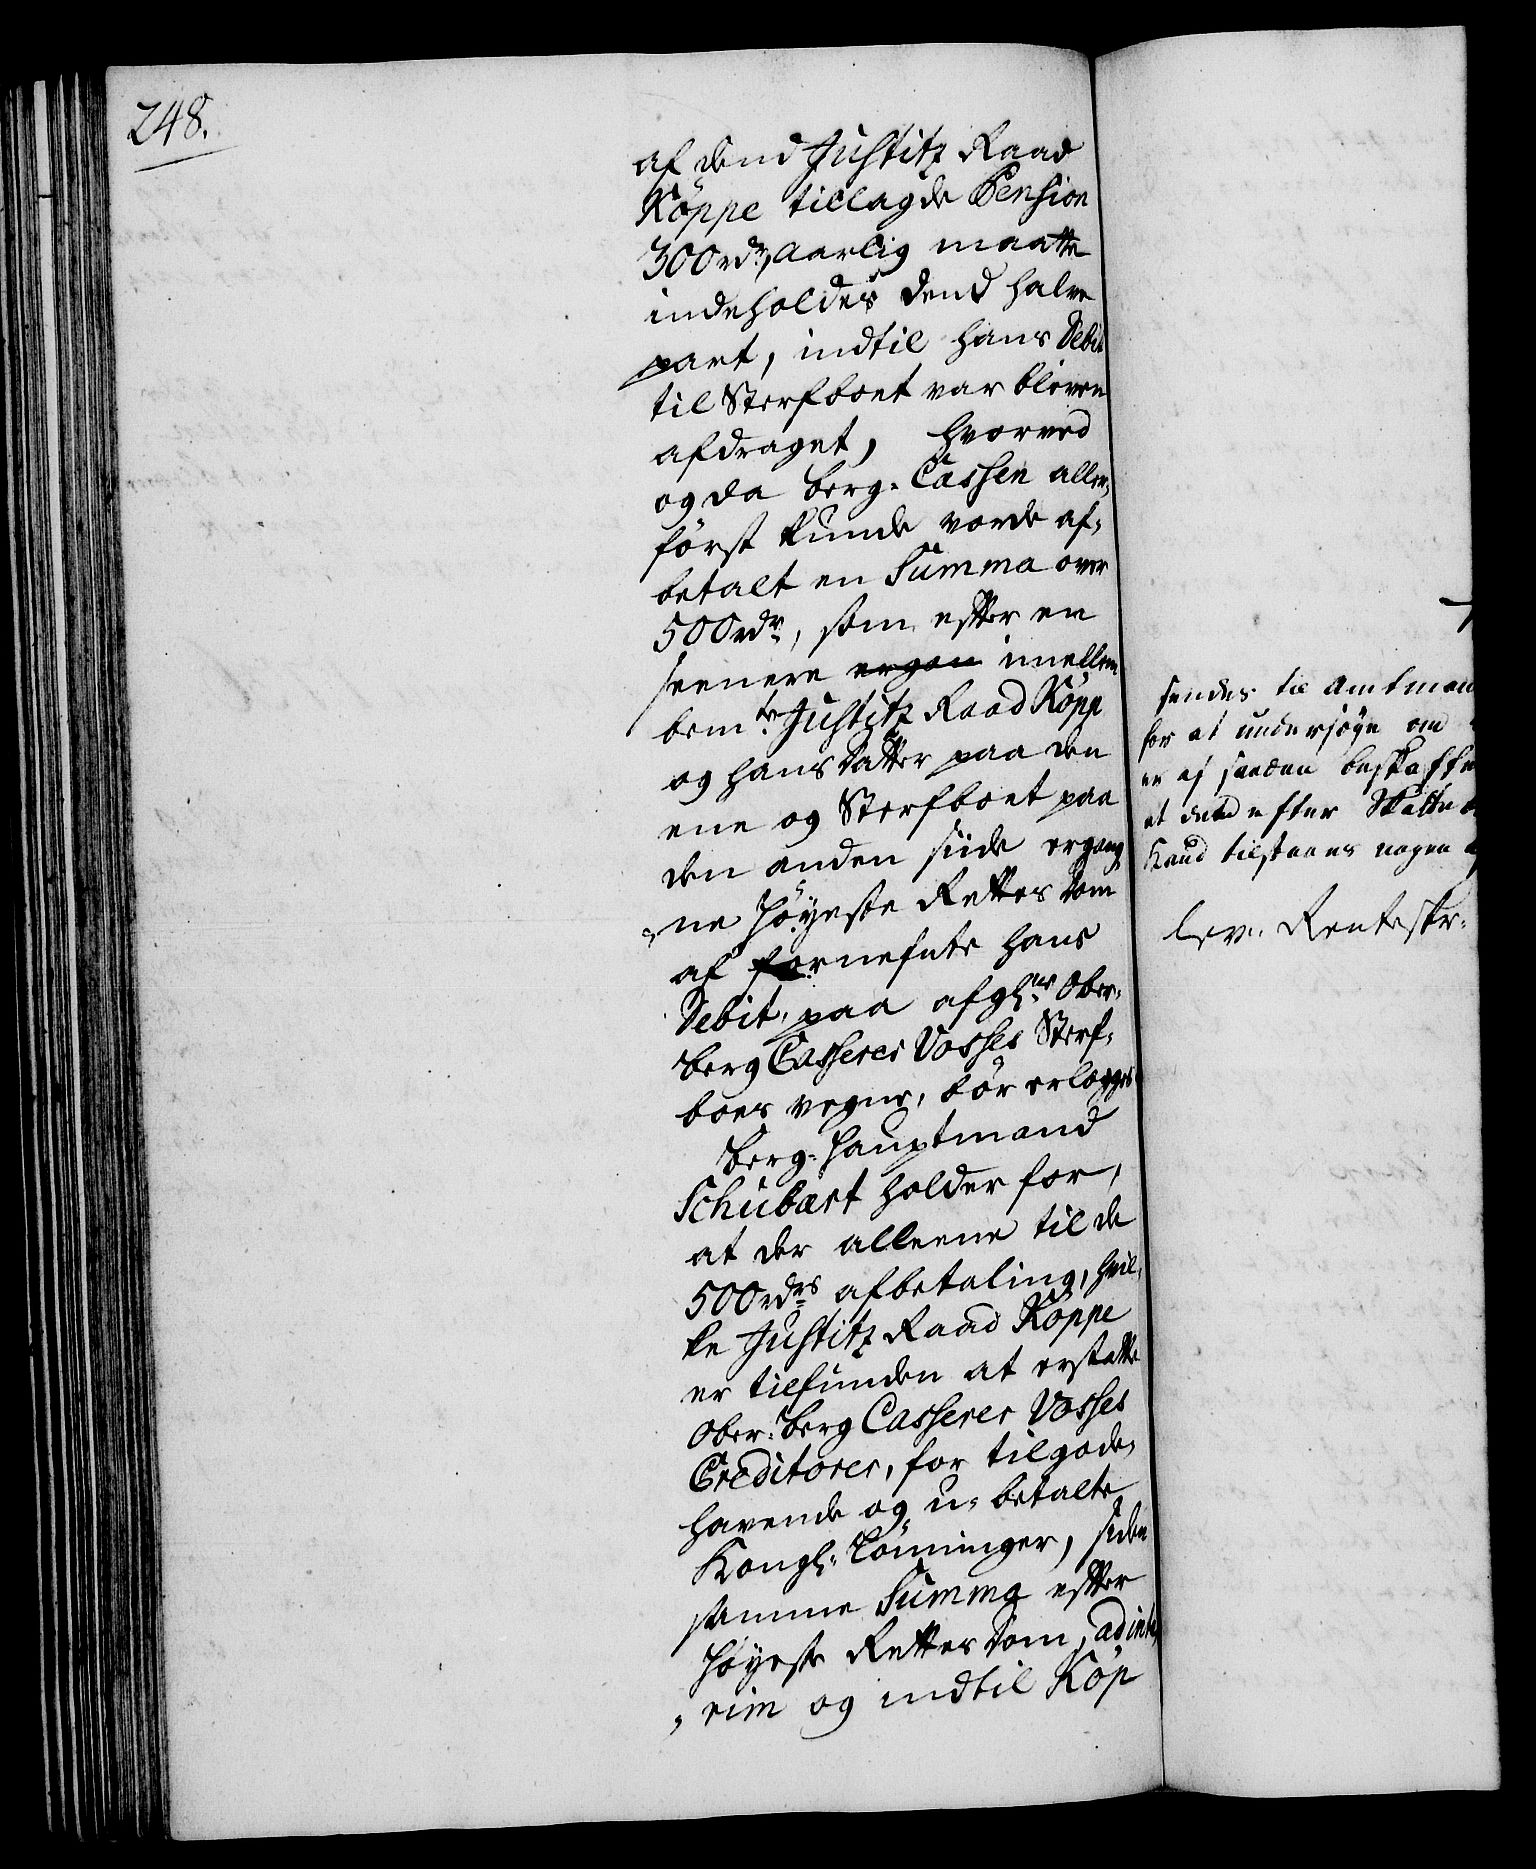 248.
af dend Justitz Raad
Köppe tillagde Pension
300 rdr, aarlig maatte
indeholdes dend halve
part, indtil hans Debit
til Sterfboet var bleven
afdraget, hvorved
og da Berg-Cassen aller-
först kunde vorde af-
betalt en Summa over
500 rdr, som efter en
seenere ergan imellem
bemte Justitz Raad Köppe
og hans Datter paa den
ene og Sterfboet paa
den anden siide ergang
ne Höyeste Rettes Dom
af fornefnte hans
Debit, paa afghne Ober-
berg Casserer Vosses Sterf-
boes vegne, bör erlægges
Berg-Hauptmand
Schubart holder for,
at der alleene til de
500 rdrs afbetaling, hvil-
ke Justitz Raad Köppe
er tilfunden at erstatte
Ober-Berg Casserer Vosses
Creditorer, for tilgode-
havende og u-betalte
Kongl: Lönninger, siden
samme Summa efter
Höyeste Rettes Dom, ad inte
rim og indtil Köp
sendes til Amtmand
for at undersøge om
er af saadan beskaffen
at dend efter Skatte
Kand tilstaaes nogen
Lev. Renteskr: